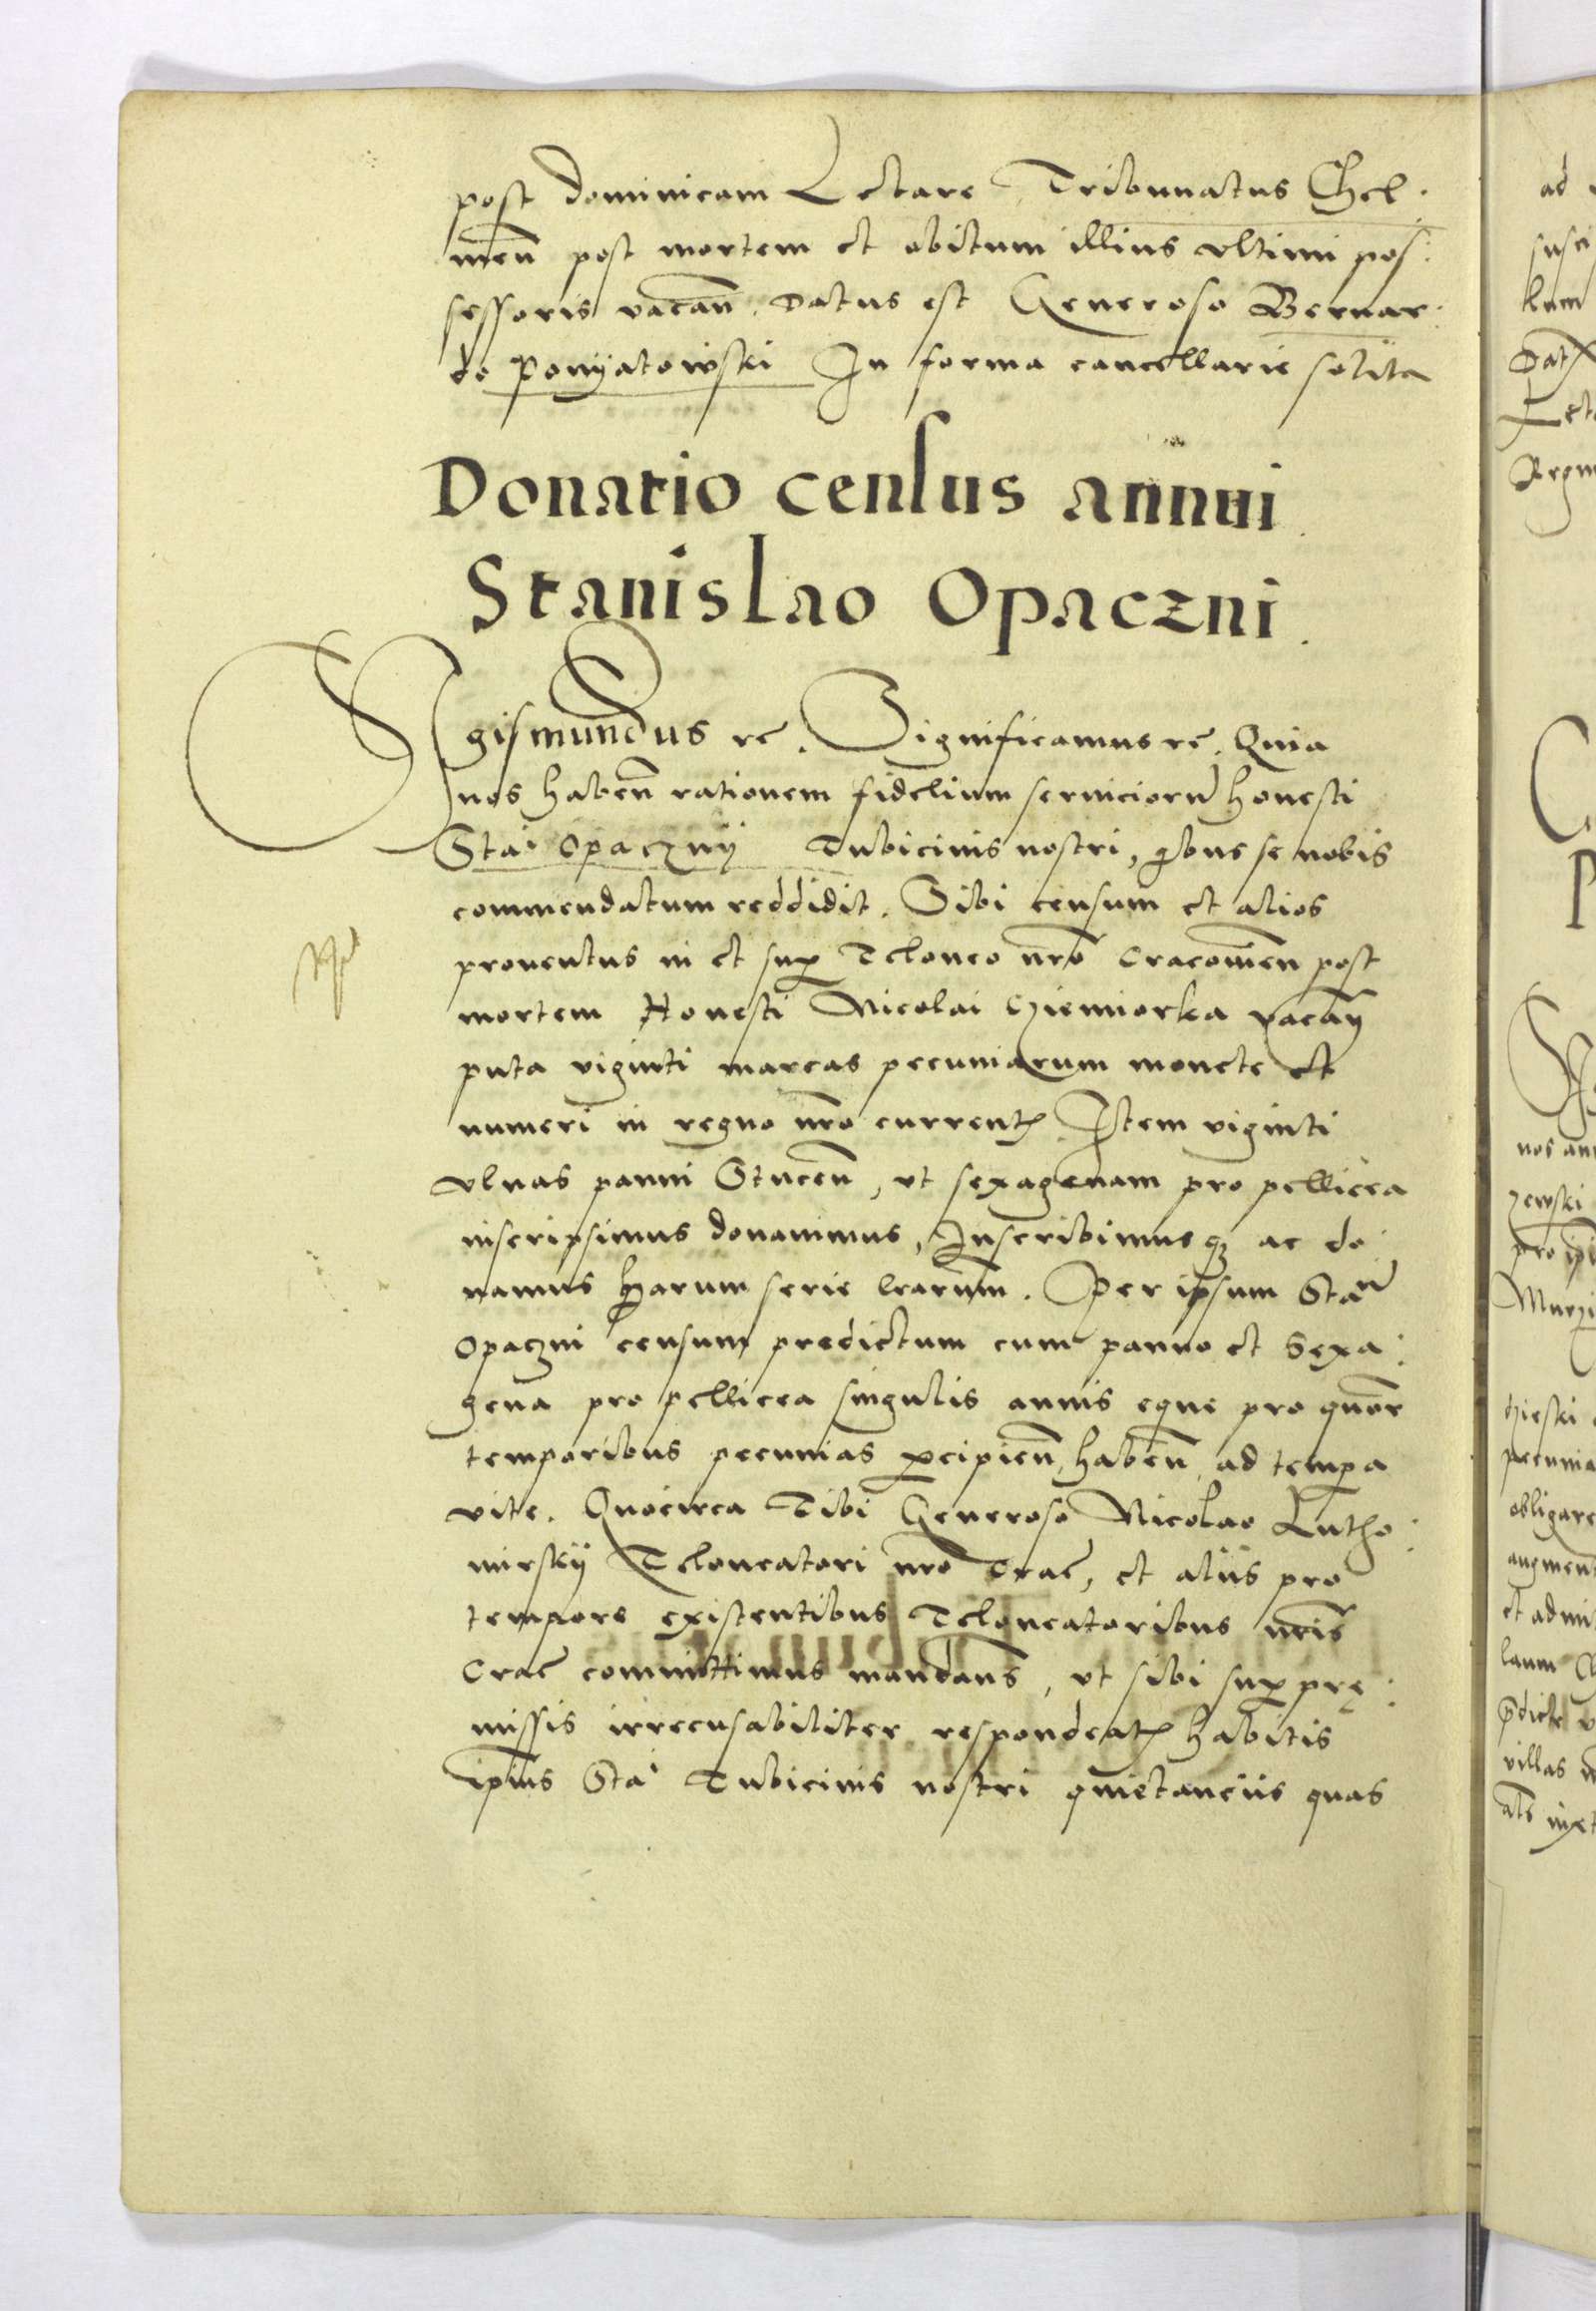 post dominicam Lectare Tribunatus Chel.
men̄ post mortem et obitum illius vltimi pos:
sessoris vacan̄. Datus est Generoso Bernar:
do Ponyatowski In forma cancellarie solita
Donatio census annui
Stanislao Opaczni.
Sigismundus rc̄. Significamus rc̄. Quia
nos haben̄ rationem fidelium seruiciorū honesti
Sta͞i Opacznÿ Tubicinis nostri, qͥbus se nobis
commendatum reddidit. Sibi censum et alios
prouentus in et suꝑ Teloneo nr̄o Cracouien̄ post
mortem Honesti Nicolai Cziemiorka vacan̄
puta viginti marcas pecuniarum monete et
numeri in regno nr̄o currentꝭ Item viginti
vlnas panni Stucen̄, vt sexagenam pro pellicea
inscripsimus donauimus, Inscribimusqꝫ ac do
namus harum serie lr̄arum. Per ipsum Sta͞u
Opaczni censum predictum cum panno et Sexa:
gena pro pellicea singulis annis eque pro quōr
temporibus pecunias ꝑcipien̄, haben̄ ad tempa
vite. Quocirca Tibi Generoso Nicolao Lutho:
mirskÿ Teloneatori nr̄o Crac̄, et aliis pro
tempore existentibus Teloneatoribus nr̄is
Crac̄ committimus mandan̄s, vt sibi suꝑ prę:
missis irrecusabiliter respondeatꝭ habitis
ip̄ius Sta͞i Tubicinis nostri quietanciis quas
ad
susci
Dat
Regni
P
nos
pro
Murzi
pecunia
obligare
augment
et admi
laum
villas